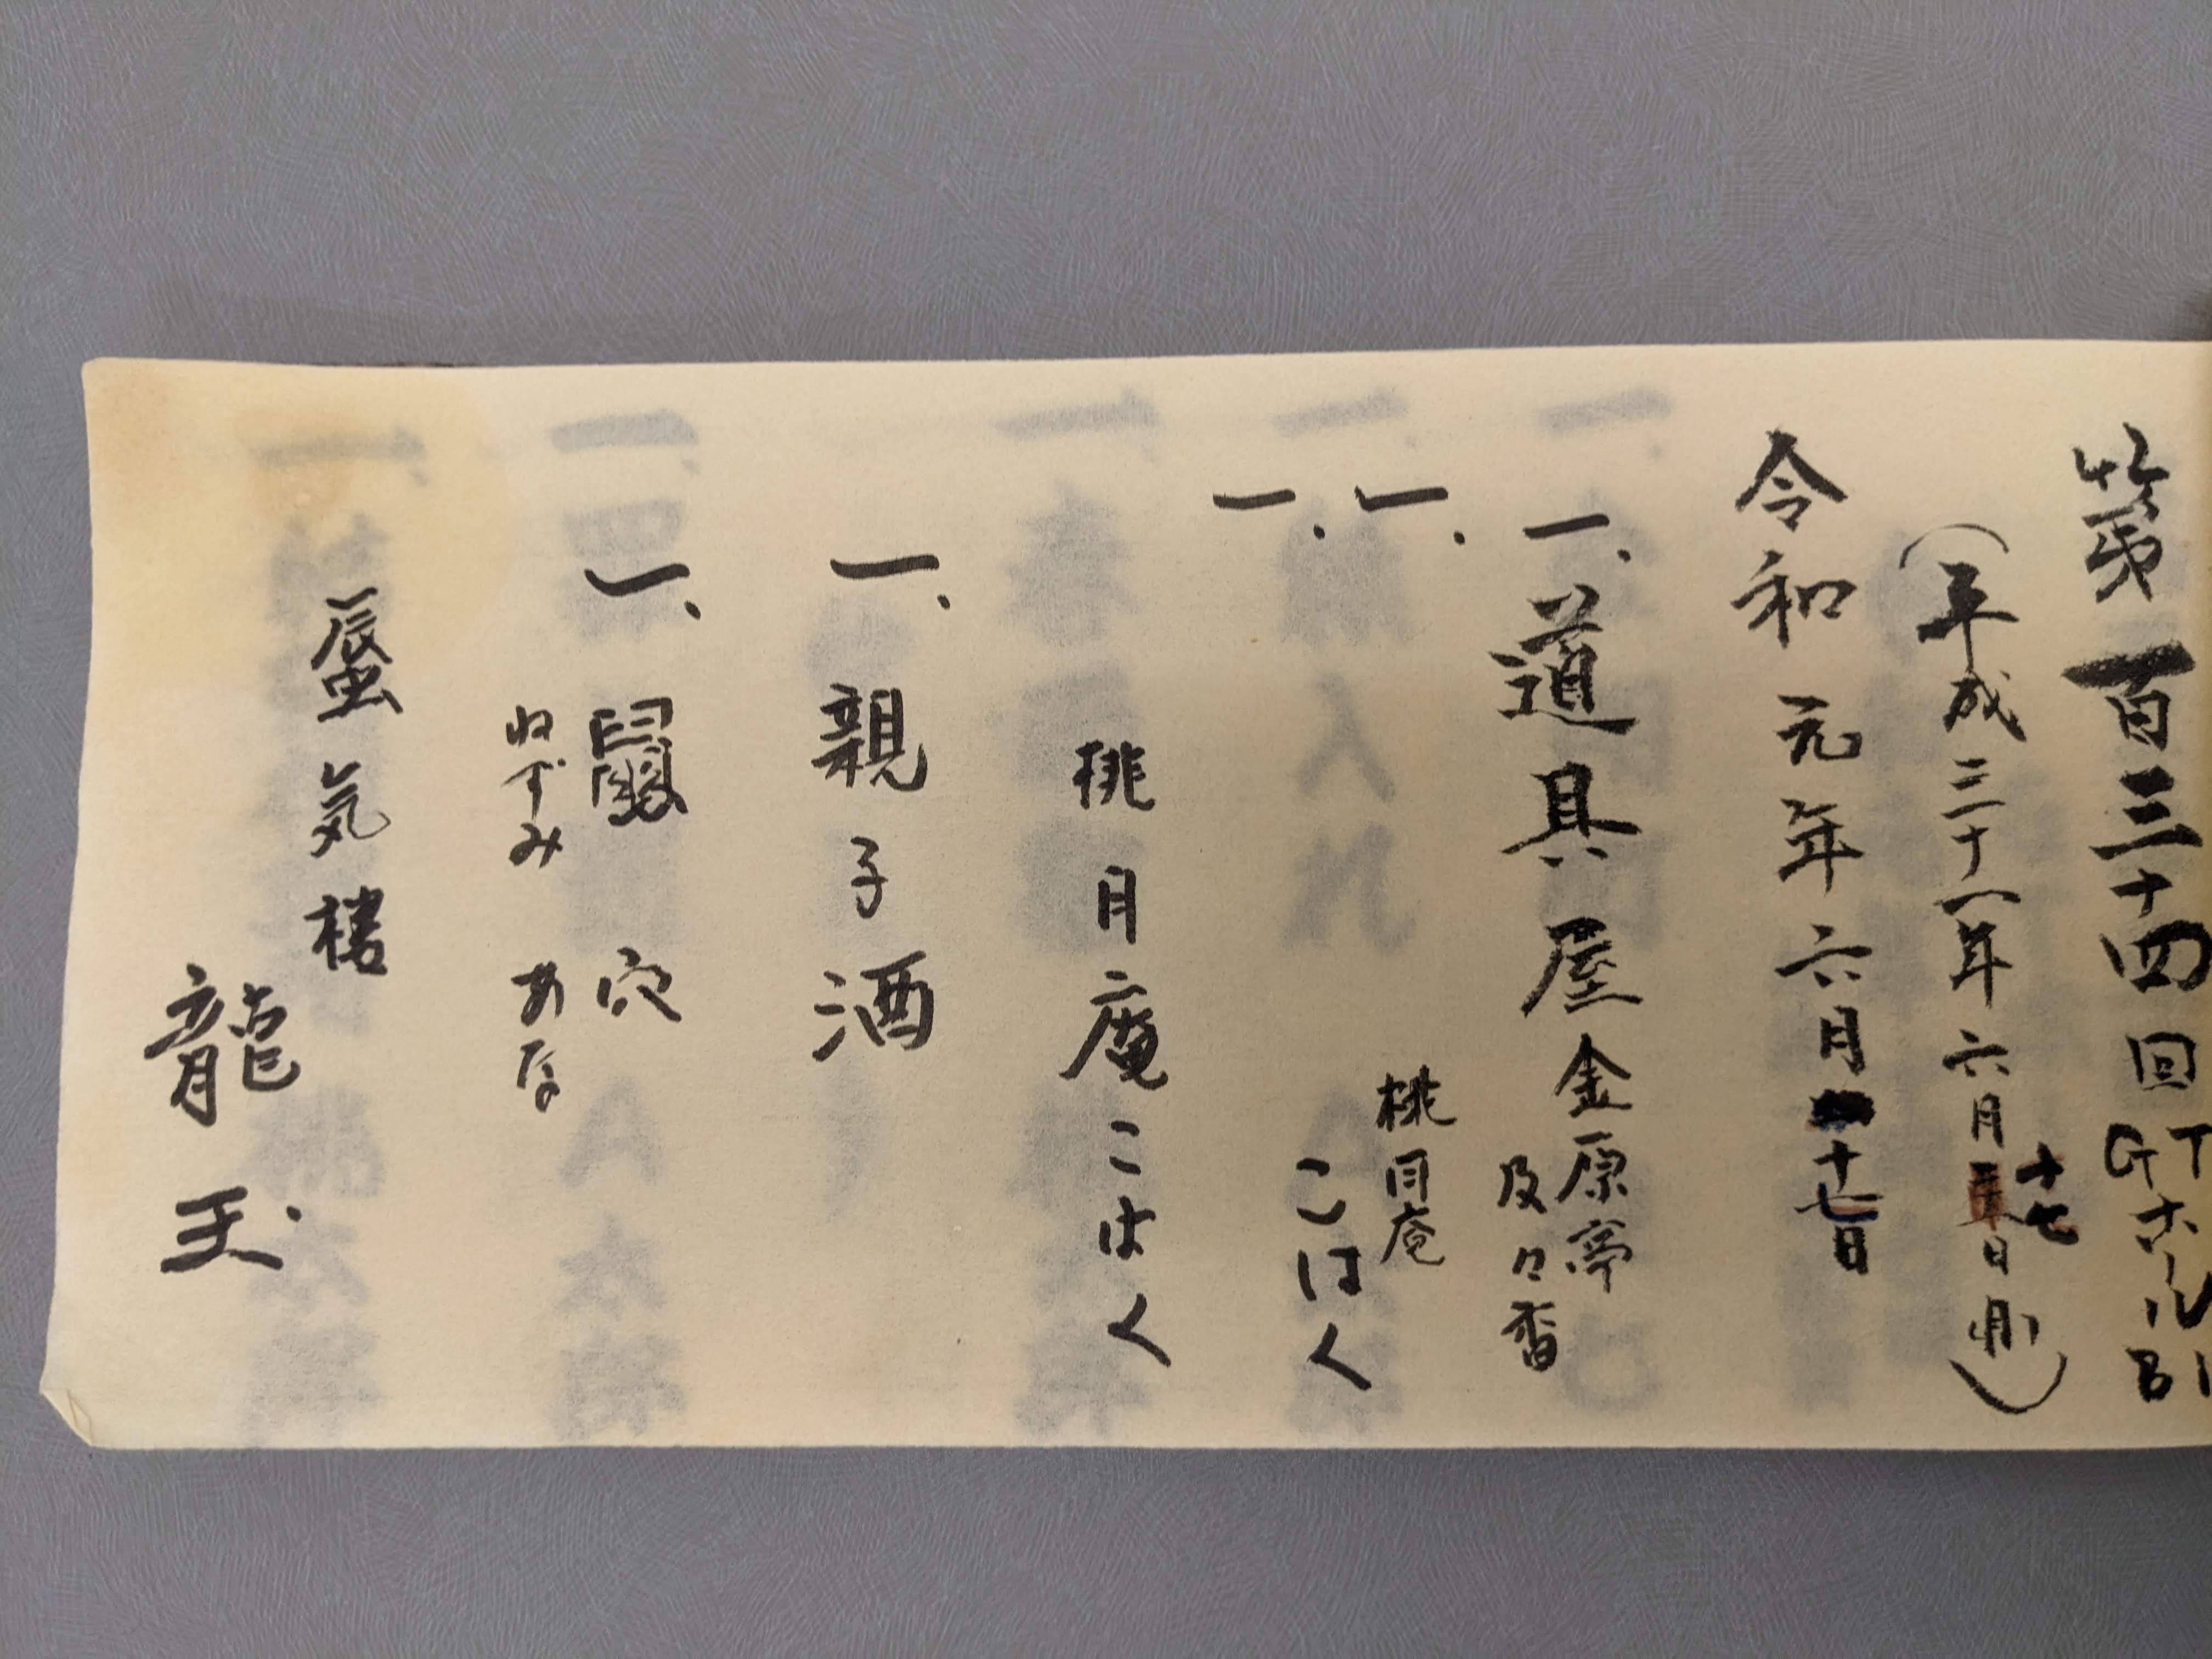 第一百三十四回 GTホールB1
(平成三十一年六月十七日(月))
令和元年六月十七日
一、道具屋 金原亭
及々香
一、
桃月庵
こはく
一、
桃月庵こはく
一、親子酒
一、鼠穴
ねずみ あな
蜃気楼
龍玉